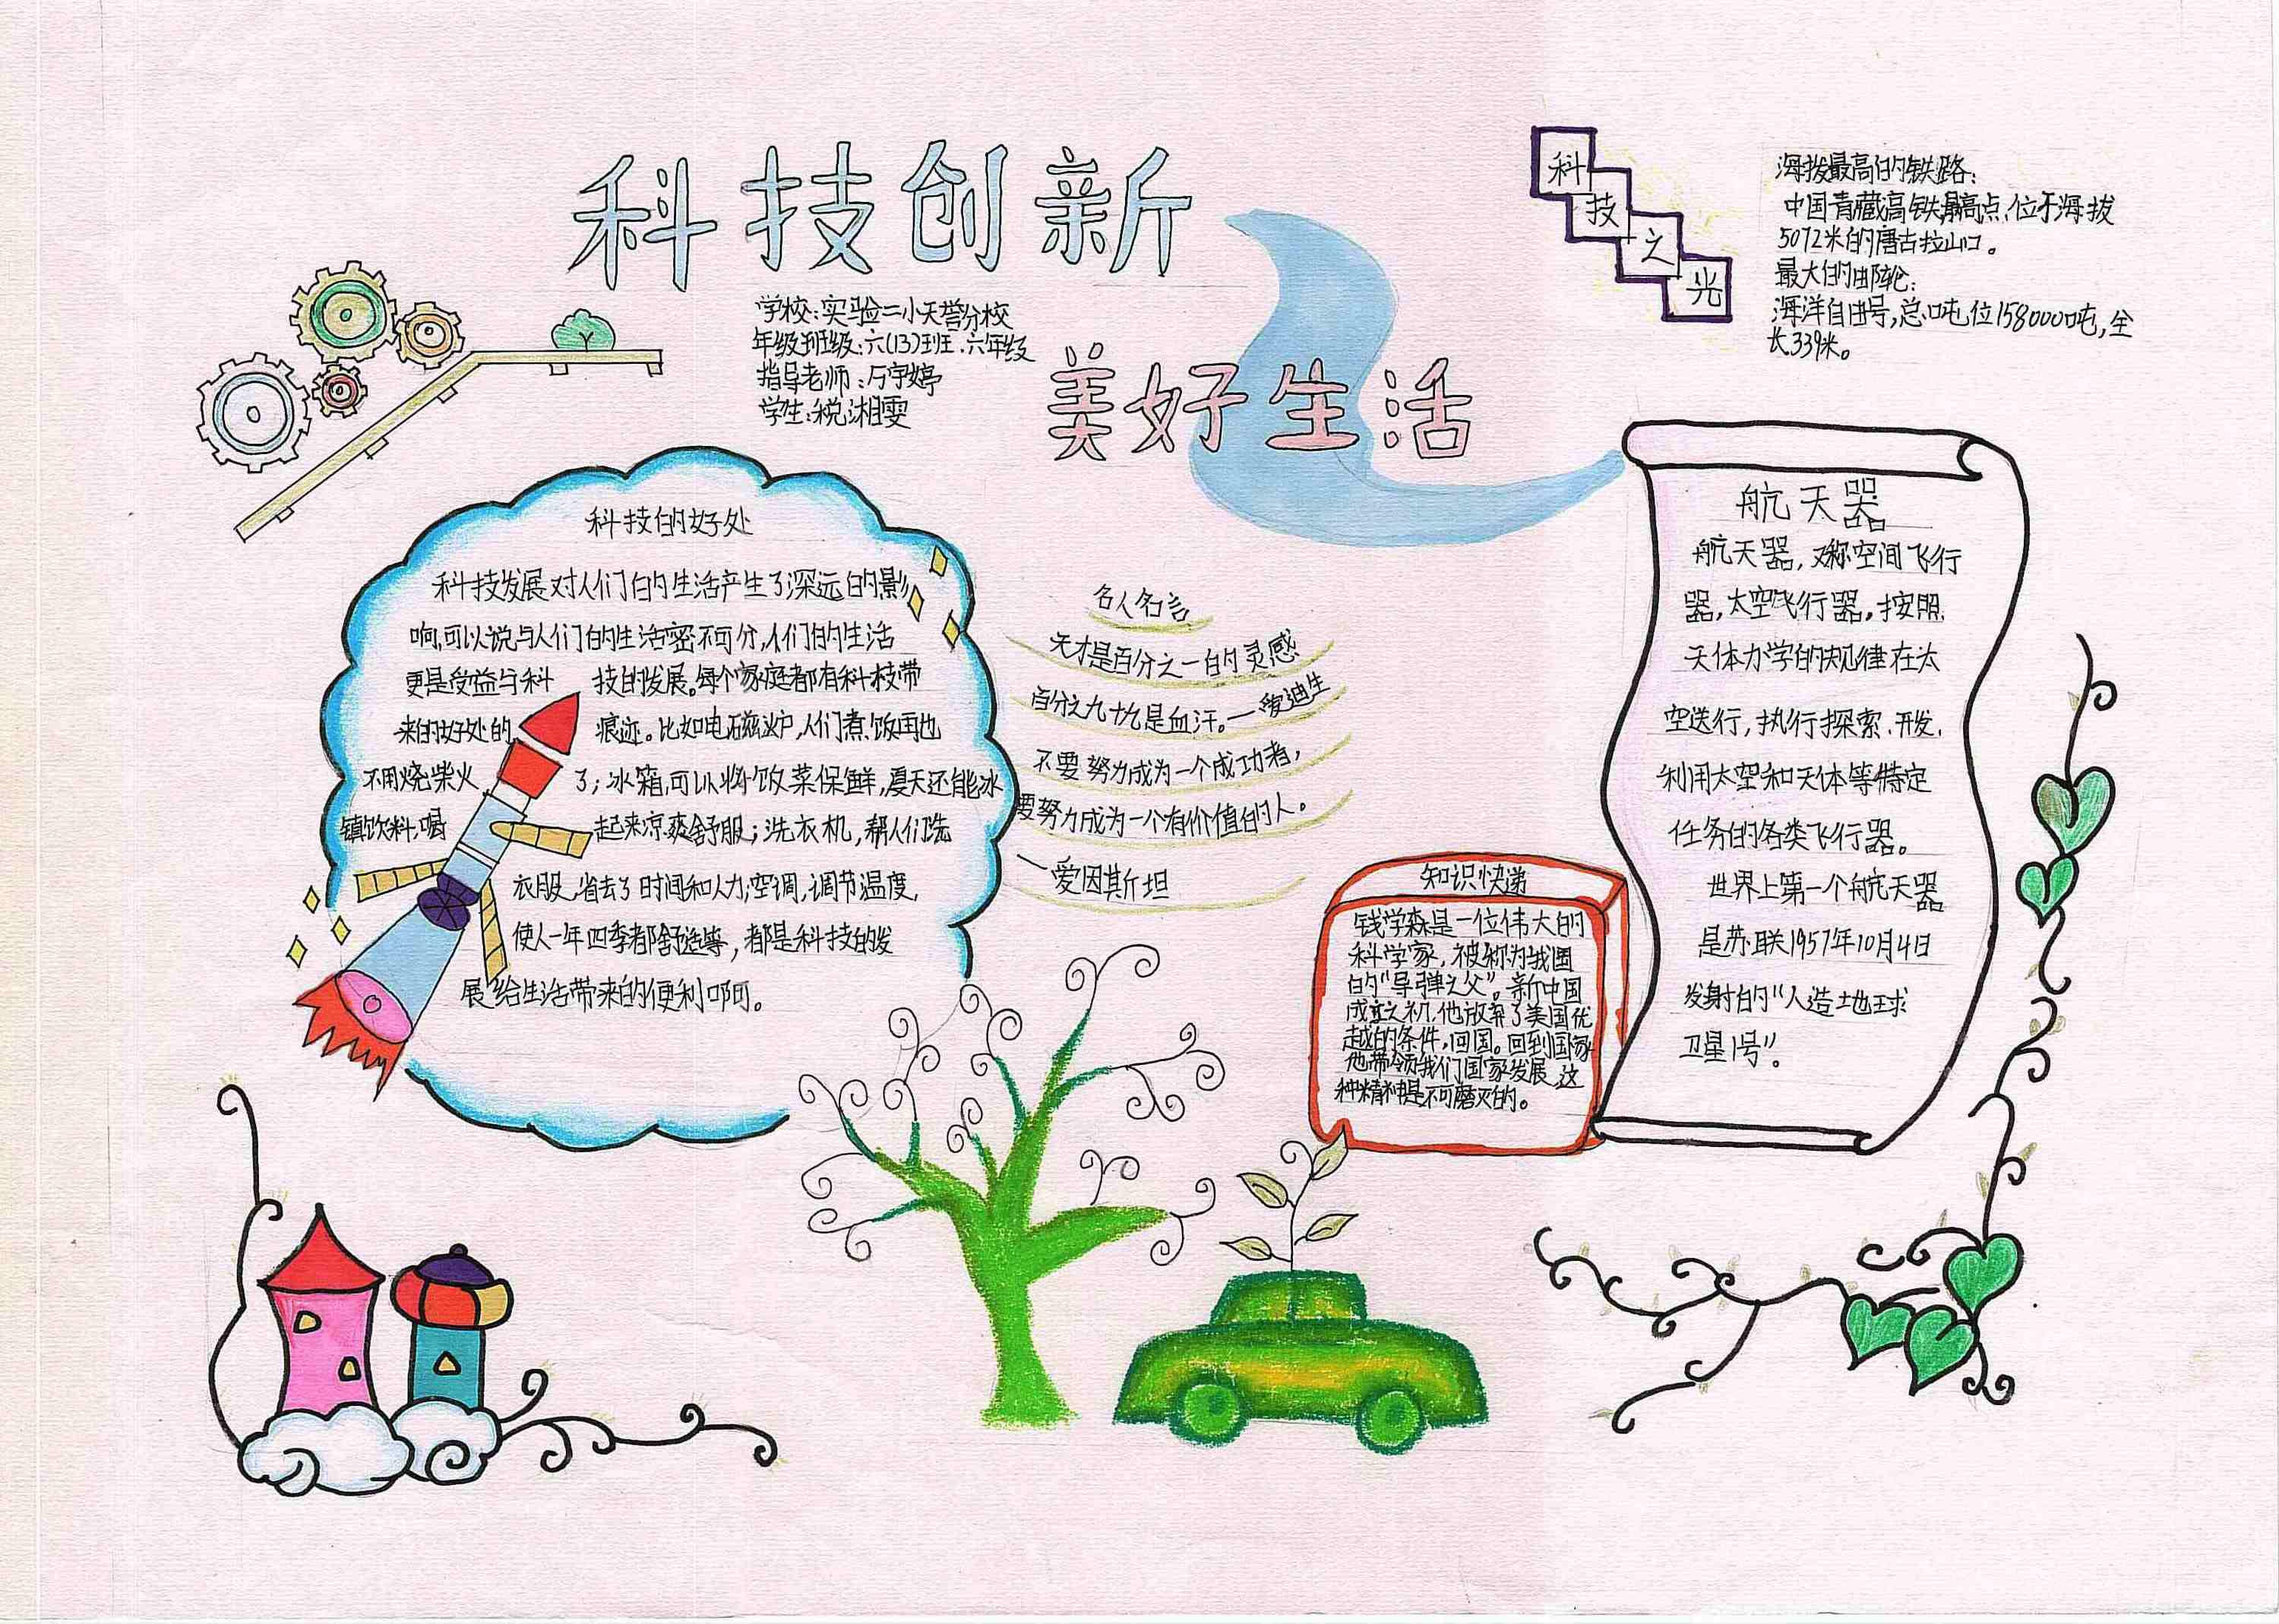 科技创新
美好生活
学校:实验二小天誉分校
年级班级:六(13)班.六年级
指导老师:万宇婷
学生:税湘雯
科技之光
海拔最高的铁路:
中国青藏高铁最高点,位于海拔
5072米的唐古拉山口。
最大的邮轮:
海洋自由号,总吨位158000吨,全
长339米。
科技的好处
科技发展对人们的生活产生了深远的影
响,可以说与人们的生活密不可分,人们的生活
更是受益与科技的发展。每个家庭都有科技带
来的好处的痕迹。比如电磁炉,人们煮饭再也
不用烧柴火了;冰箱,可以将饭菜保鲜,夏天还能冰
镇饮料,喝起来凉爽舒服;洗衣机,帮人们洗
衣服,省去了时间和人力;空调,调节温度,
使人一年四季都舒适等,都是科技的发
展给生活带来的便利啊。
名人名言
天才是百分之一的灵感
百分之九十九是血汗。—爱迪生
不要努力成为一个成功者,
要努力成为一个有价值的人。
—爱因斯坦
知识快递
钱学森是一位伟大的
科学家,被称为我国
的“导弹之父”。新中国
成立之初,他放弃了美国优
越的条件,回国。回到国家
他带领我们国家发展,这
种精神是不可磨灭的。
航天器
航天器,又称空间飞行
器,太空飞行器,按照
天体力学的规律在太
空运行,执行探索.开发.
利用太空和天体等特定
任务的各类飞行器。
世界上第一个航天器
是苏联1957年10月4日
发射的“人造地球
卫星1号”.